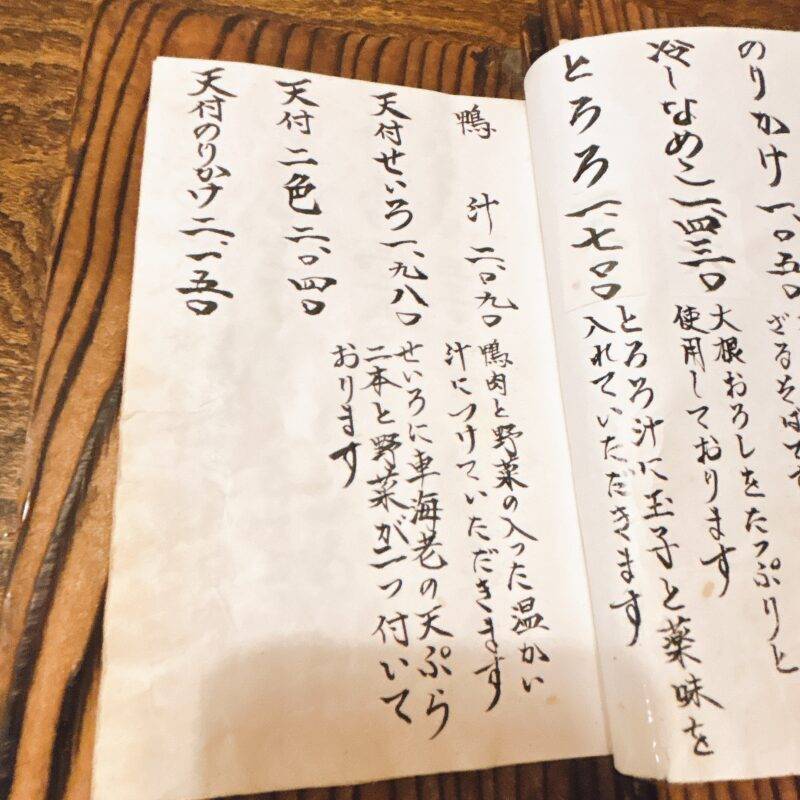 のりかけ 一、〇五〇
ざるそば
冷しなめこ 一、四三〇
大根おろしをたっぷりと
使用しております
とろろ 一、七〇〇
とろろ汁に玉子と薬味を
入れていただきます
鴨 汁 二、〇九〇
鴨肉と野菜の入った温かい
汁につけていただきます
天付せいろ 一、九八〇
せいろに車海老の天ぷら
二本と野菜が二つ付いて
おります
天付二色 二、〇四〇
天付のりかけ 二、一五〇